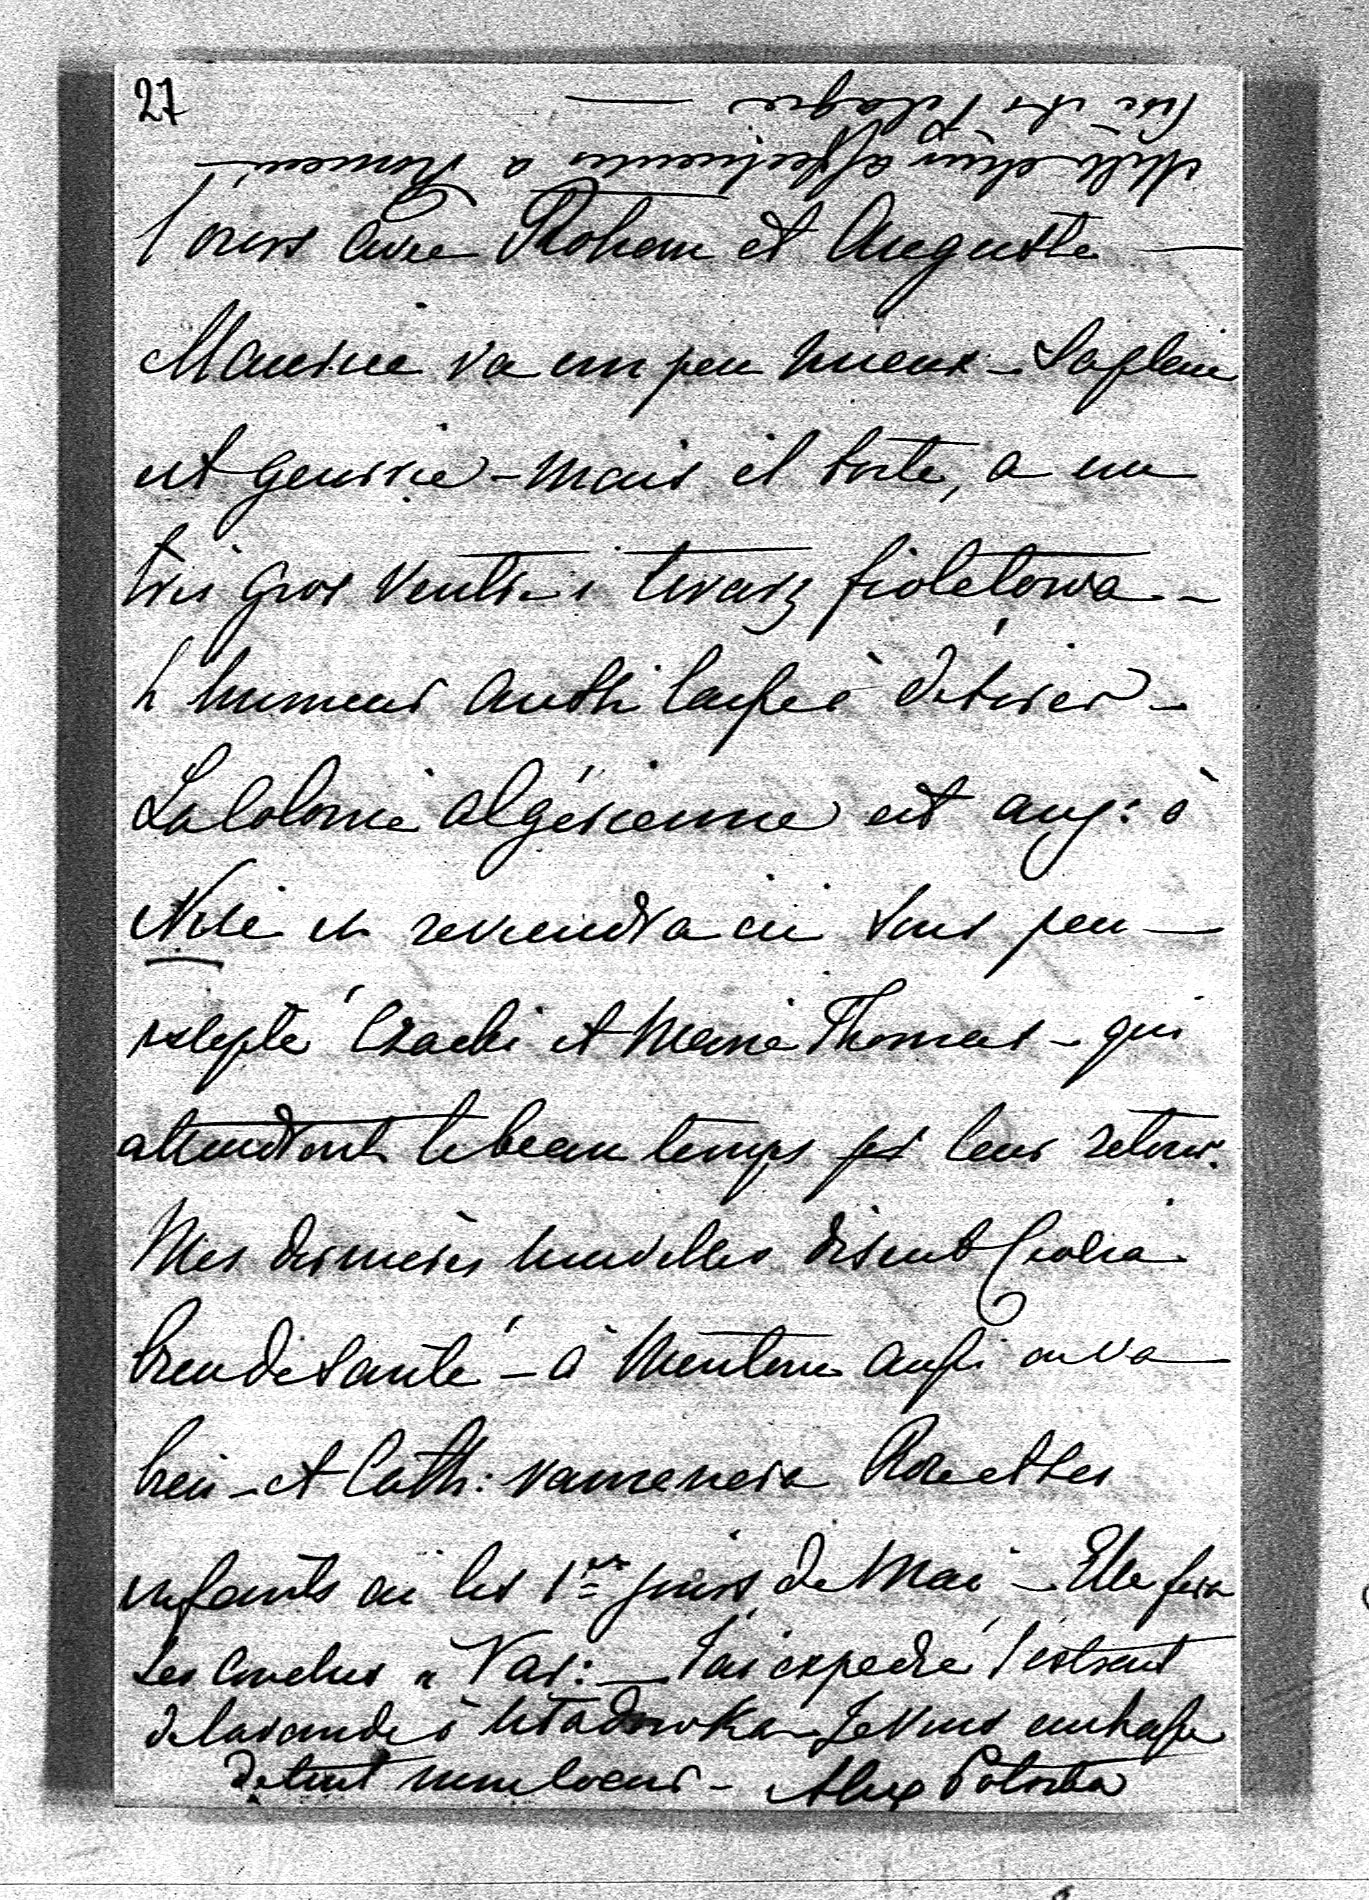 27
Mille choses affectueuses à Roman
fié des Pelagie
Tours avec Rohan et Auguste —
Maurice va un peu mieux – Sa plaie
est guerrie – mais il sorte, a un
très gros ventre i twarz fioletowa –
L'humeur aussi laisse à désirer –
La Colonie algérienne est auj: à
Nice et reviendra ici sous peu —
excepté Czacki et Marie Thomas – qui
attendront le beau temps pr leur retour.
Mes dernières nouvelles disent
bien de santé – à Menton aussi on va —
bien – et Cath: ramenera Roze et ses
enfants ici les 1ers jours de Mai – Elle fera
ses couches à Vars: – J'ai expedié l'extrait
de lavande à – Je vous embrasse
de tout mon coeur – Alex Potocka